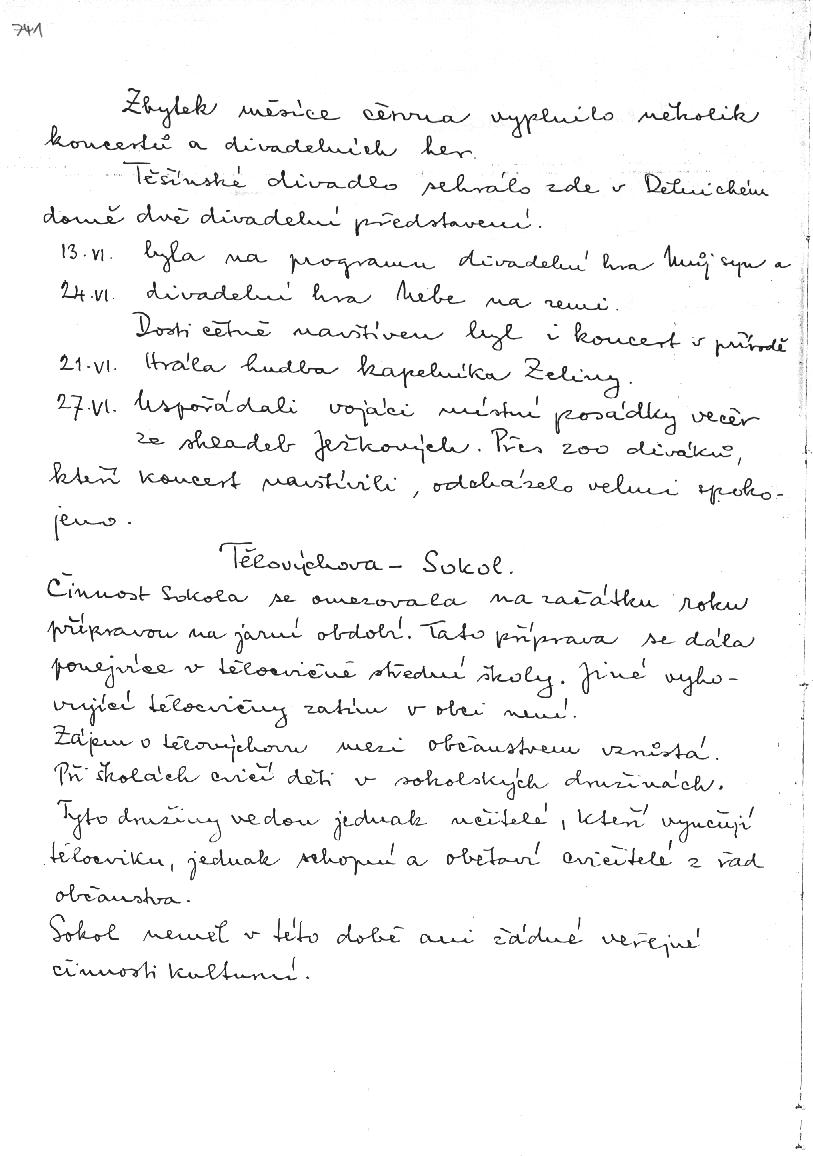 741
Zbytek měsíce června vyplnilo několik
koncertů a divadelních her.
Těšínské divadlo sehrálo zde v Dělnickém
domě dvě divadelní představení.
13.VI. byla na programu divadelní hra Můj syn a
24.VI. divadelní hra Nebe na zemi.
Dosti četně navštíven byl i koncert v přírodě
21.VI. Hrála hudba kapelníka Zeliny.
27.VI. Uspořádali vojáci místní posádky večer
ze skladeb Ježkových. Přes 200 diváků,
kteří koncert navštívili, odcházelo velmi spoko-
jeno.
Tělovýchova – Sokol.
Činnost Sokola se omezovala na začátku roku
přípravou na jarní období. Tato příprava se dála
ponejvíce v tělocvičně střední školy. Jiné vyho-
vující tělocvičny zatím v obci není.
Zájem o tělovýchovu mezi občanstvem vzrůstá.
Při školách cvičí děti v sokolských družinách.
Tyto družiny vedou jednak učitelé, kteří vyučují
tělocviku, jednak schopní a obětaví cvičitelé z řad
občanstva.
Sokol neměl v této době ani žádné veřejné
činnosti kulturní.